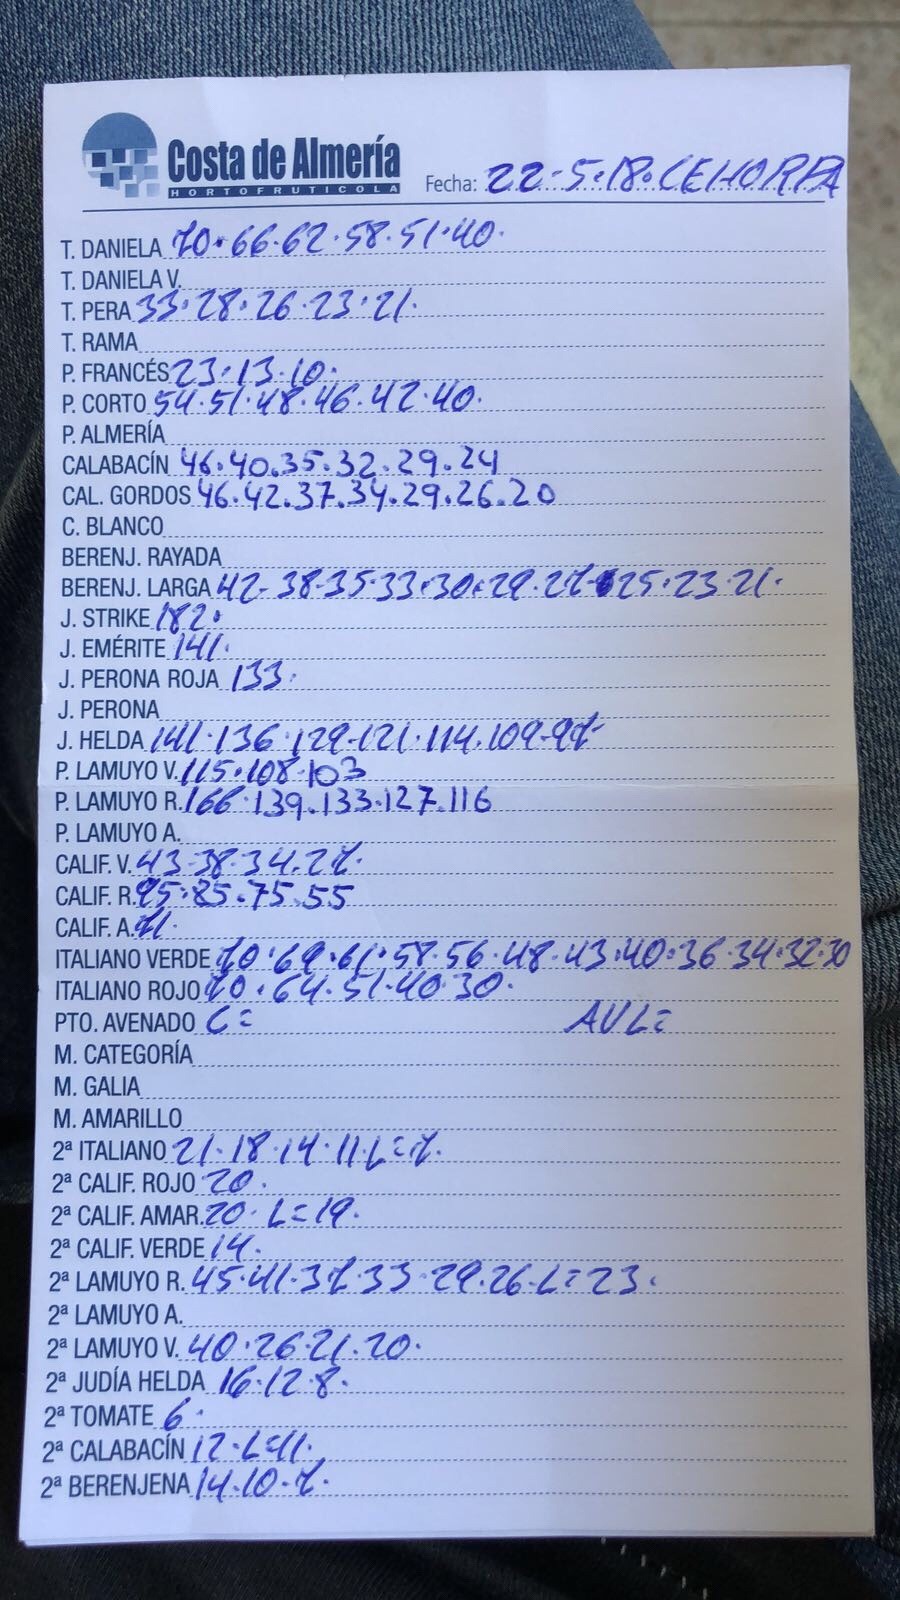 Costa de Almería
HORTOFRUTICOLA
Fecha: 22-5-18. CEHORPA
T. DANIELA 70.66.62.58.51.40.
T. DANIELA V.
T. PERA 33.28.26.23.21.
T. RAMA
P. FRANCÉS 23.13.10.
P. CORTO 54.51.48.46.42.40.
P. ALMERÍA
CALABACÍN 46.40.35.32.29.24
CAL. GORDOS 46.42.37.34.29.26.20
C. BLANCO
BERENJ. RAYADA
BERENJ. LARGA 42-38.35.33.30.29.27.25.23.21.
J. STRIKE 182.
J. EMÉRITE 141.
J. PERONA ROJA 133.
J. PERONA
J. HELDA 141.136.129-121.114.109-97
P. LAMUYO V. 115.108.103
P. LAMUYO R. 166.139.133.127.116
P. LAMUYO A.
CALIF. V. 43-38.34.27.
CALIF. R. 95.85.75.55
CALIF. A. 71.
ITALIANO VERDE 70.69.61.58.56.48.43.40.36.34.32.30
ITALIANO ROJO 70.64.51.40.30.
PTO. AVENADO C= AVL=
M. CATEGORÍA
M. GALIA
M. AMARILLO
2ª ITALIANO 21.18.14.11.L=7.
2ª CALIF. ROJO 20.
2ª CALIF. AMAR. 20. L=19.
2ª CALIF. VERDE 14.
2ª LAMUYO R. 45.41.37.33.29.26.L=23.
2ª LAMUYO A.
2ª LAMUYO V. 40.26.21.20.
2ª JUDÍA HELDA 16.12.8.
2ª TOMATE 6.
2ª CALABACÍN 12.L=11.
2ª BERENJENA 14.10.7.